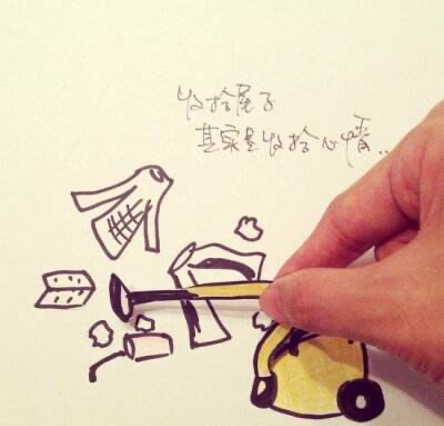 收拾屋子
其实是收拾心情...